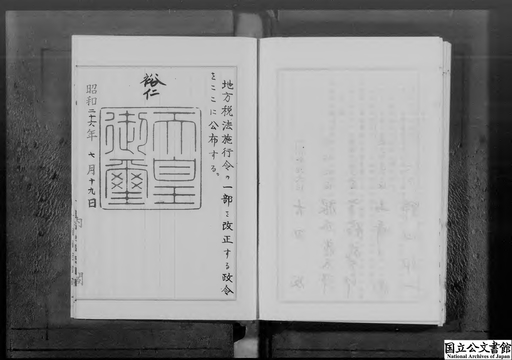 地方税法施行令の一部を改正する政令
をここに公布する。
裕仁
天皇
御璽
昭和二十六年七月十九日
内閣
国立公文書館
National Archives of Japan